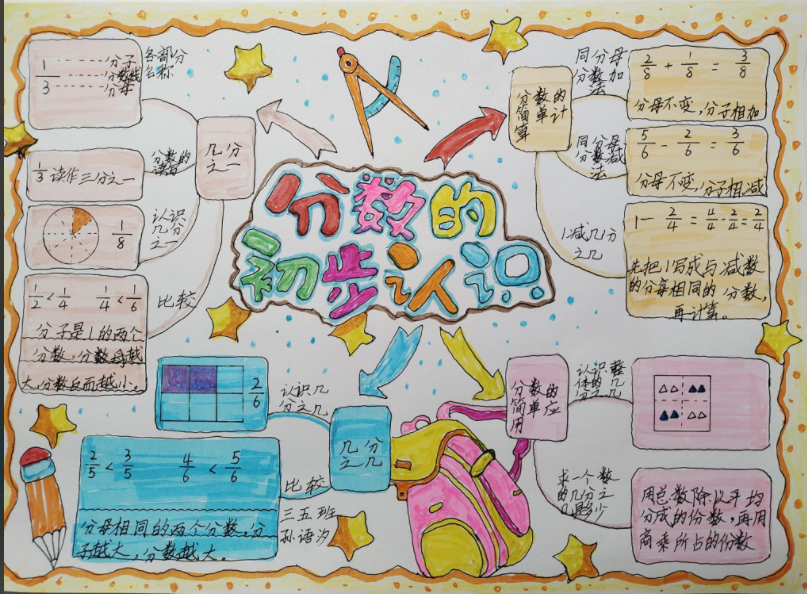 分数的
初步认识
几分
之一
各部分
名称
1 分子
分数线
3 分母
分数的
读写
1/3 读作三分之一
认识
几分
之一
1/8
比较
1/2 < 1/4 1/4 < 1/6
分子是1的两个
分数,分数母越
大,分数反而越小。
分数的
简单计
算
同分母
分数加
法
2/8 + 1/8 = 3/8
分母不变,分子相加
同分母
分数减
法
5/6 - 2/6 = 3/6
分母不变,分子相减
1减几分
之几
1 - 2/4 = 4/4 - 2/4 = 2/4
先把1写成与减数
的分母相同的分数,
再计算。
几分
之几
认识几
分之几
2/6
比较
2/5 < 3/5 4/6 < 5/6
分母相同的两个分数,分
子越大,分数越大。
三五班
孙语汐
分数的
简单应
用
认识整
体的几
分之几
求一个数
的几分之
几是多少
用总数除以平均
分成的份数,再用
商乘所占的份数